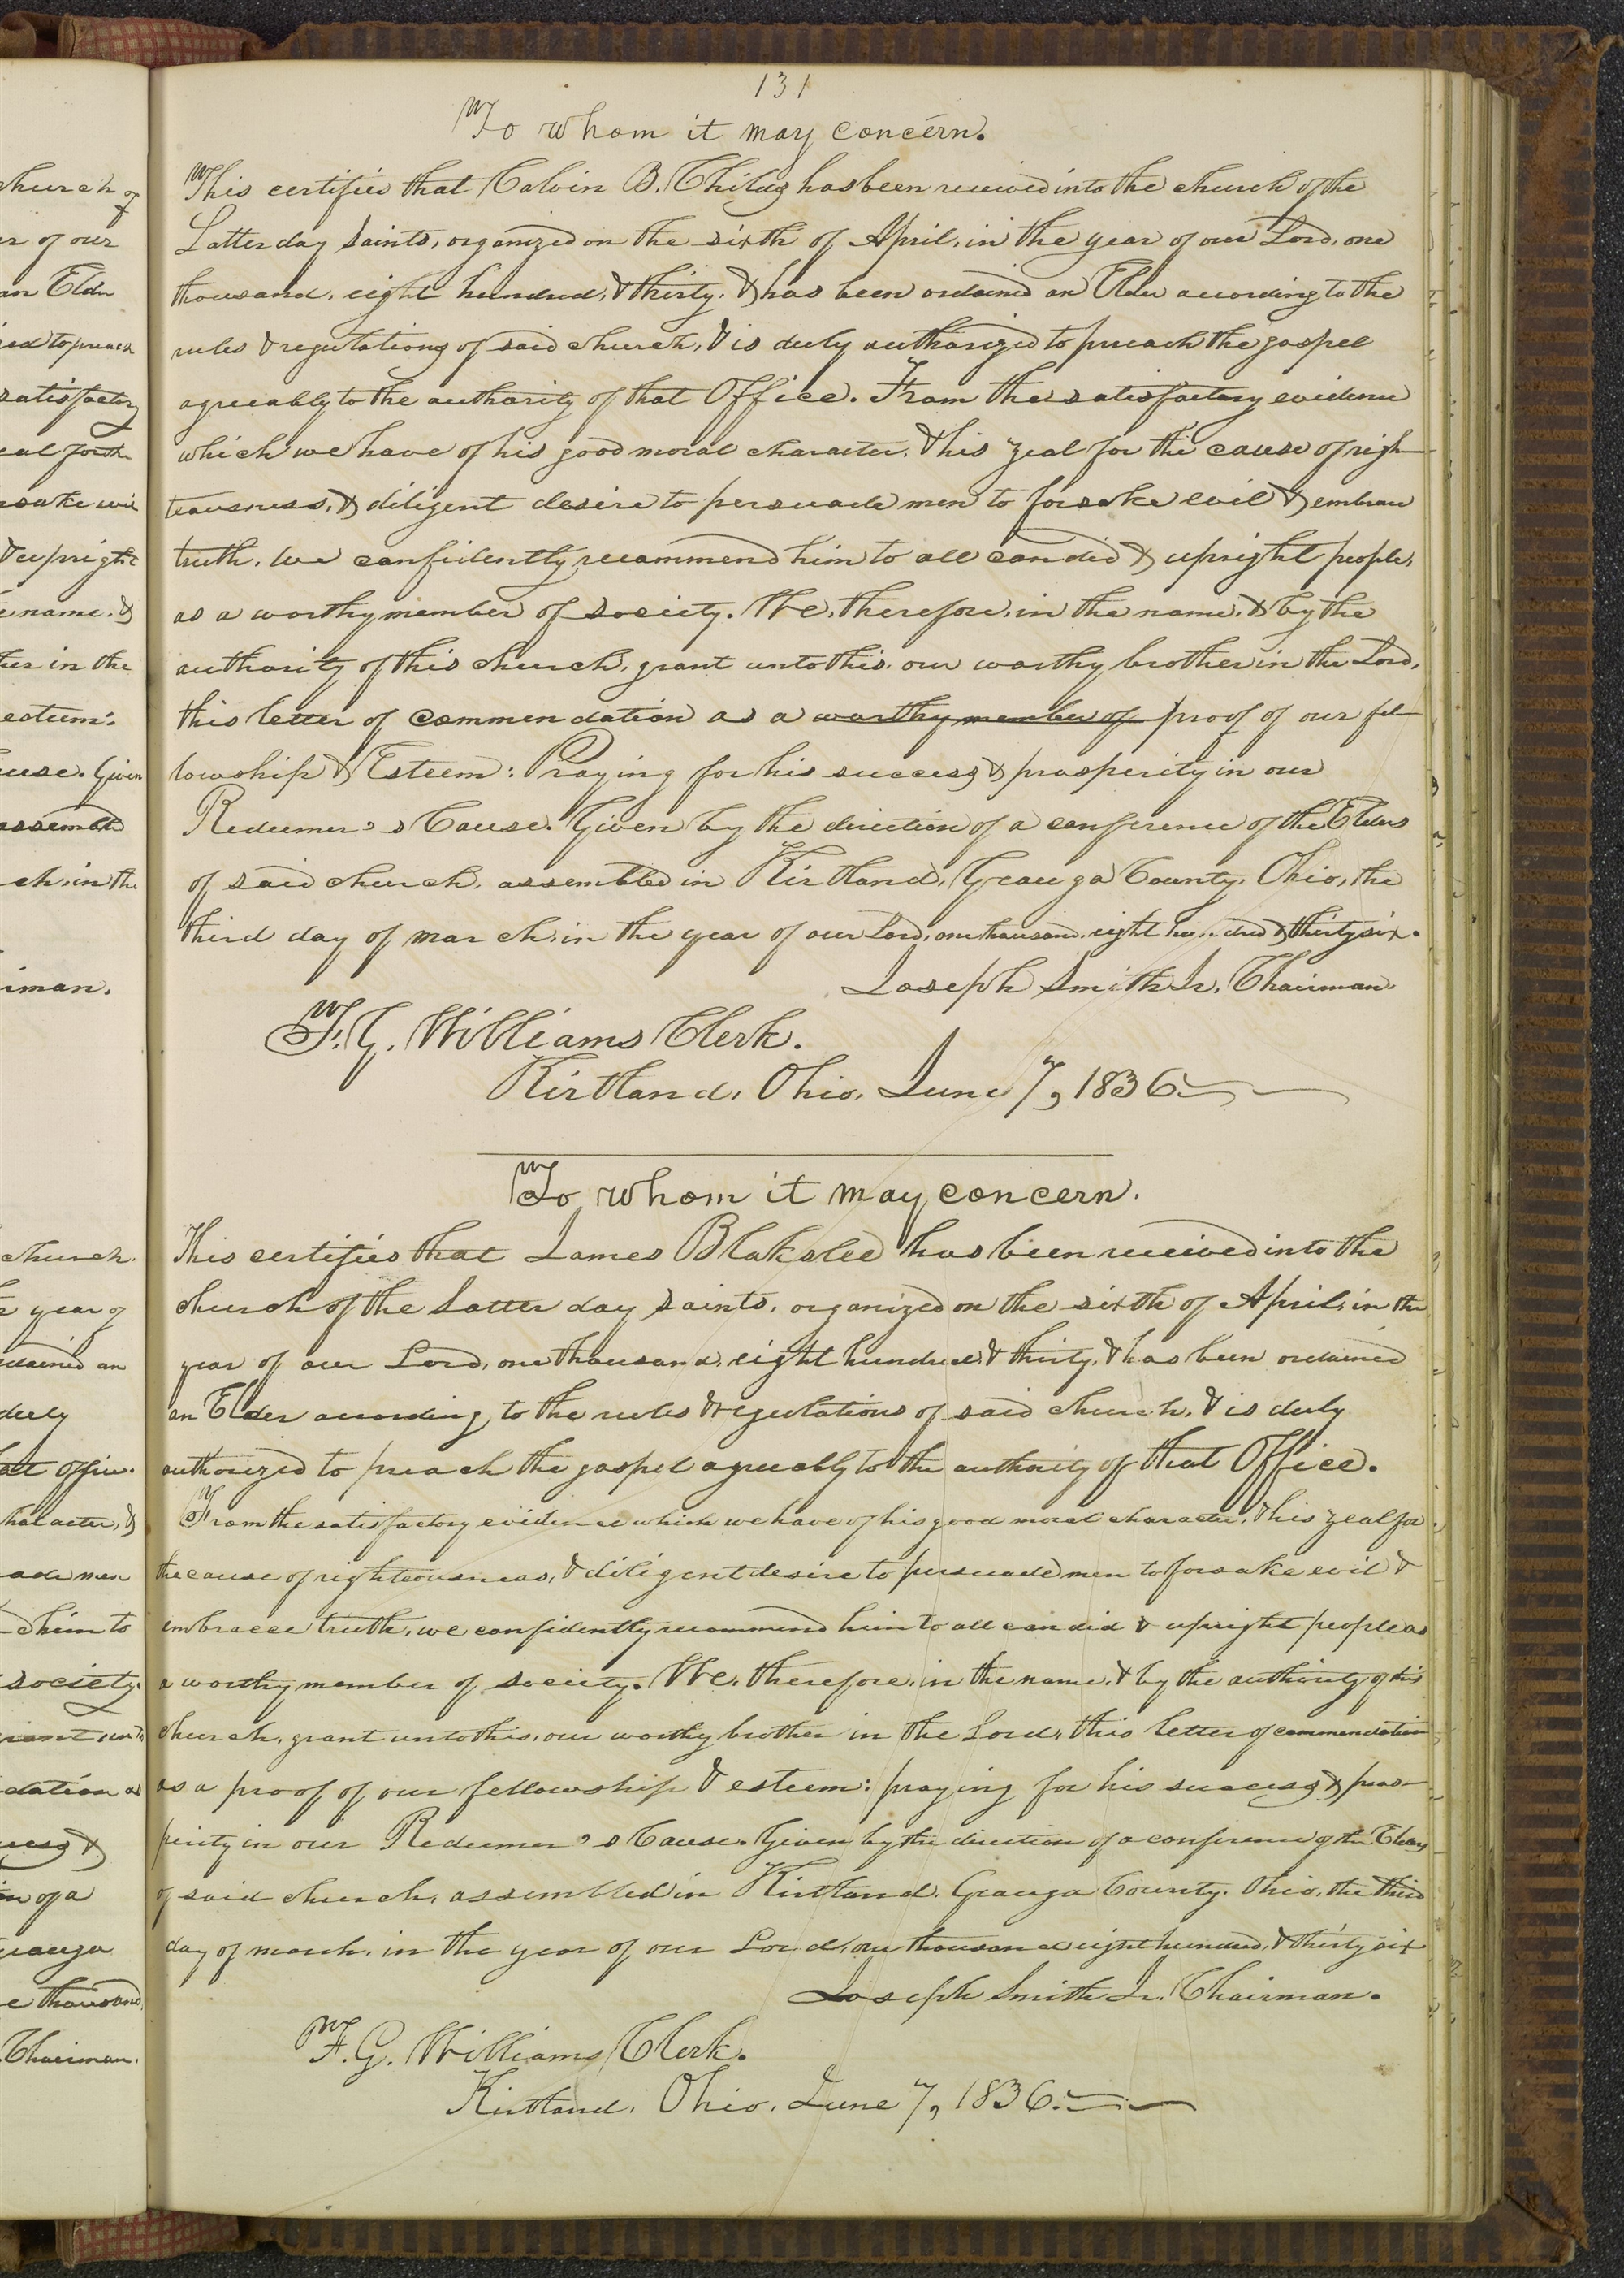 131
To whom it may concern.
This certifies that Calvin B. Childs has been received into the church of the
Latter day saints, organized on the sixth of April, in the year of our Lord, one
thousand, eight hundred, & thirty, & has been ordained an Elder according to the
rules & regulations of said church, & is duly authorized to preach the gospel
agreeably to the authority of that Office. From the satisfactory evidence
which we have of his good moral character, & his zeal for the cause of righ-
teousness, & diligent desire to persuade men to forsake evil & embrace
truth, we confidently recommend him to all candid & upright people,
as a worthy member of society. We, therefore, in the name, & by the
authority of this church, grant unto this, our worthy brother in the Lord,
this letter of commendation as a worthy member of proof of our fel-
lowship & Esteem: Praying for his success & prosperity in our
Redeemer's Cause. Given by the direction of a conference of the Elders
of said church, assembled in Kirtland, Geauga County, Ohio, the
third day of march, in the year of our Lord, one thousand, eight hundred & thirty six.
Joseph Smith Jr. Chairman.
F. G. Williams Clerk.
Kirtland, Ohio, June 7, 1836.
To whom it may concern.
This certifies that James Blakslee has been received into the
church of the Latter day saints, organized on the sixth of April, in the
year of our Lord, one thousand, eight hundred, & thirty, & has been ordained
an Elder according to the rules & regulations of said church, & is duly
authorized to preach the gospel agreeably to the authority of that Office.
From the satisfactory evidence which we have of his good moral character, & his zeal for
the cause of righteousness, & diligent desire to persuade men to forsake evil &
embracee truth, we confidently recommend him to all candid & upright people as
a worthy member of society. We, therefore, in the name, & by the authority of this
church, grant unto this, our worthy brother in the Lord, this letter of commendation
as a proof of our fellowship & esteem: praying for his success & pros-
perity in our Redeemer's Cause. Given by the direction of a conference of the Elders
of said church, assembled in Kirtland, Geauga County, Ohio, the third
day of march, in the year of our Lord, one thousand eight hundred, & thirty six
Joseph Smith Jr. Chairman.
F. G. Williams Clerk.
Kirtland, Ohio, June 7, 1836.